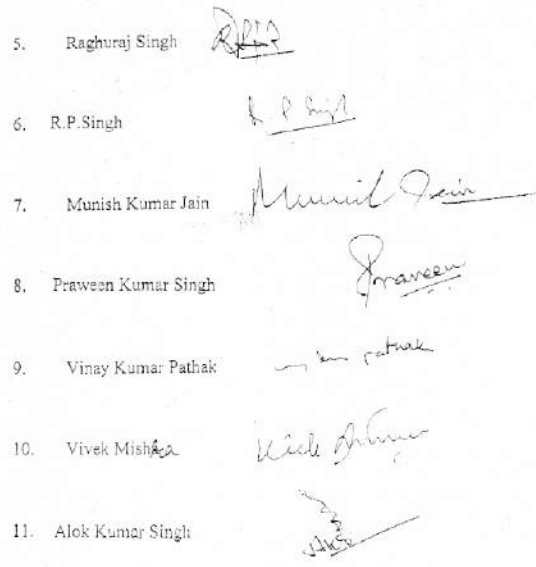 5. Raghuraj Singh
6. R.P.Singh R. P Singh
7. Munish Kumar Jain Munish Jain
8. Praween Kumar Singh Praveen
9. Vinay Kumar Pathak pathak
10. Vivek Mishra
11. Alok Kumar Singh AKS